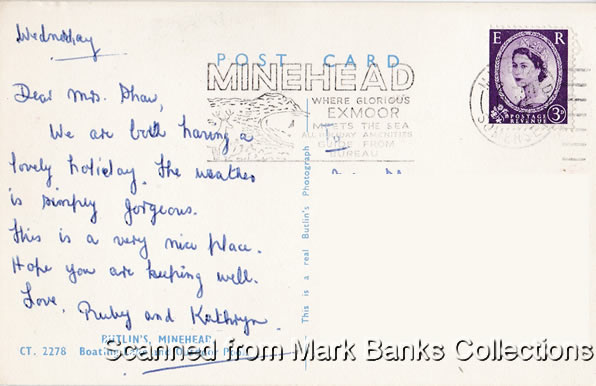 Wednesday
POST CARD
E R
MINEHEAD
WHERE GLORIOUS
EXMOOR
MEETS THE SEA
ALL HOLIDAY AMENITIES
GUIDE FROM
BUREAU
POSTAGE
REVENUE
3D
Dear Mrs. Shaw,
We are both having a
lovely holiday. The weather
is simply gorgeous.
This is a very nice place.
Hope you are keeping well.
Love, Ruby and Kathryn.
This is a real Butlin's Photograph
BUTLIN'S, MINEHEAD
CT. 2278 Boating Lake and Outdoor Pool
Scanned from Mark Banks Collections